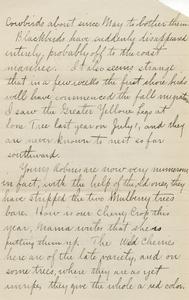 cowbirds about since May to bother them.
Blackbirds have suddenly disappeared
entirely, probably off to the coast
marshes. It also seems strange
that in a few weeks the first shore birds
will have commenced the fall migration.
I saw the Greater Yellow legs at
Lone Tree last year on July 1, and they
are never known to nest so far
southward.
Young Robins are now very numerous
in fact, with the help of the old ones, they
have stripped the two Mulberry trees
bare. How is our Cherry Crop this
year, Mama writes that she is
putting them up. The Wild Cherries
here are of the late variety, and on
some trees, where they are as yet
unripe, they give the whole a red color.